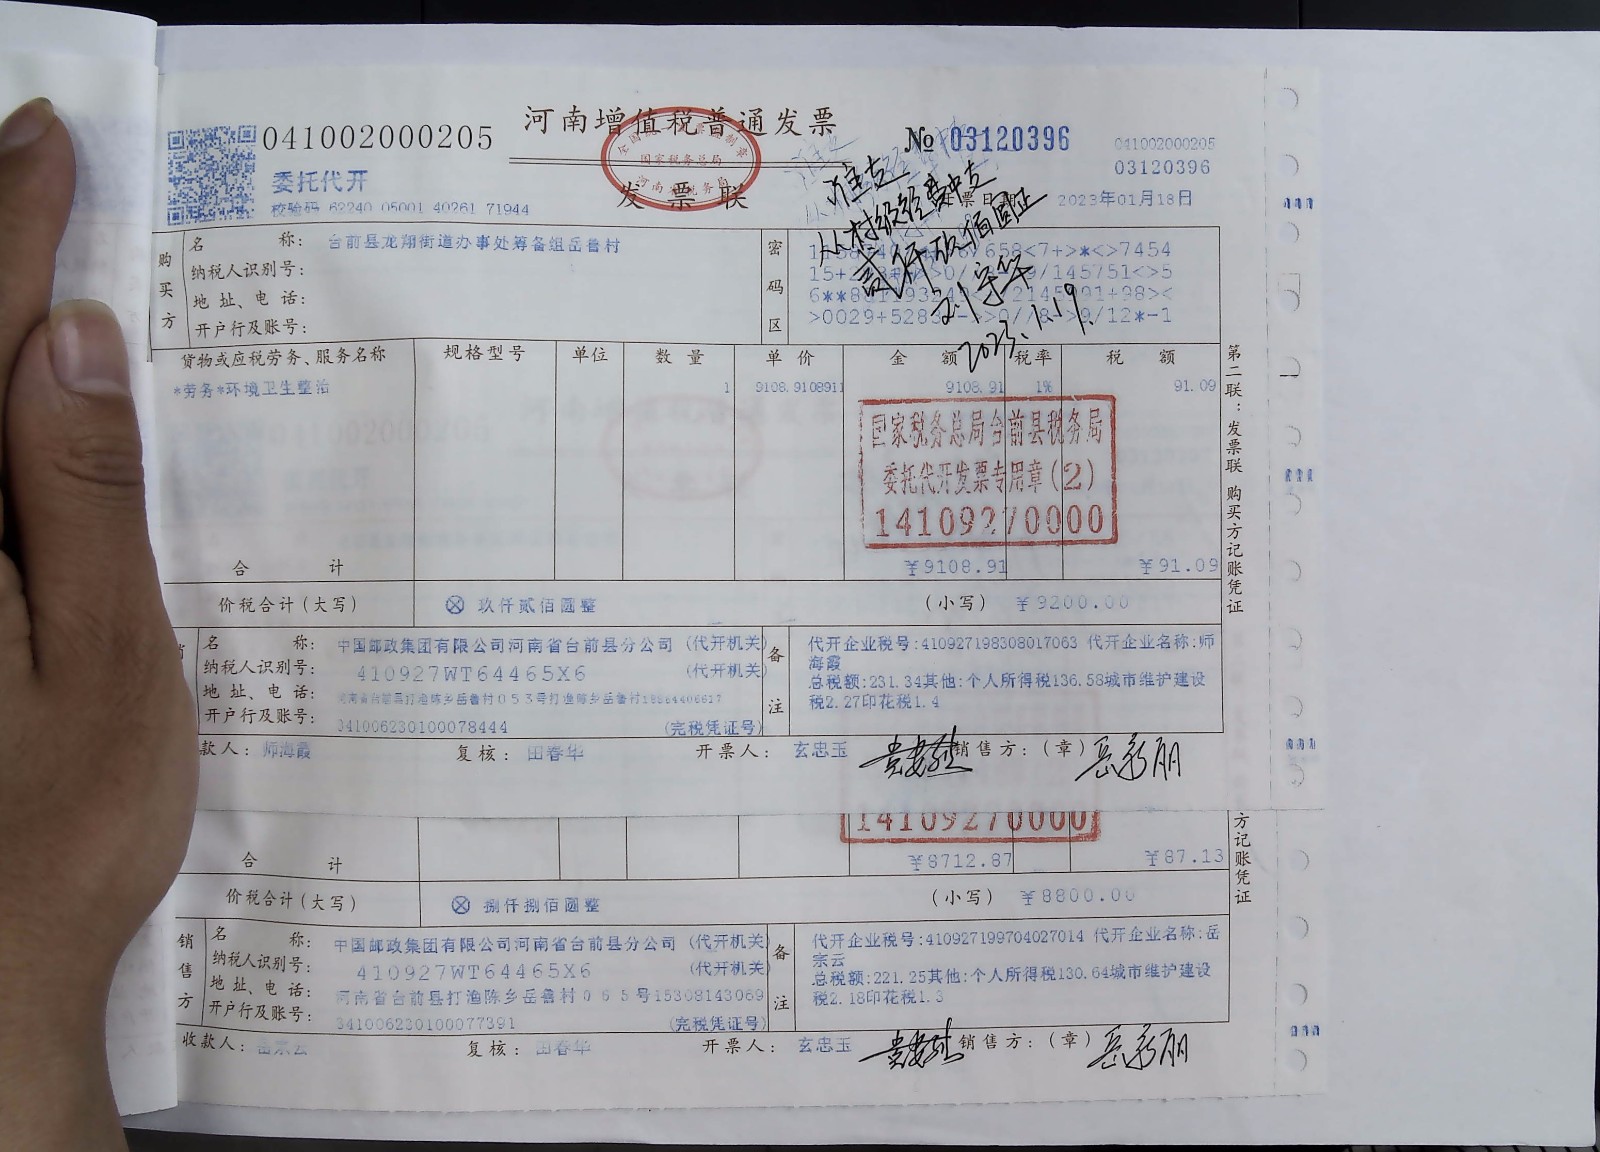 041002000205
河南增值税普通发票
No 03120396
041002000205
03120396
委托代开
校验码 62240 05001 40261 71944
发票联
全国统一发票监制章
国家税务总局
河南省税务局
开票日期 2023年01月18日
准支
从村级经费中支
2023.1.19.
购买方
名称：台前县龙翔街道办事处筹备组岳鲁村
纳税人识别号：
地址、电话：
开户行及账号：
密码区
658<7+>*<>7454
/145751<>5
>0029+528
9/12*-1
货物或应税劳务、服务名称 规格型号 单位 数量 单价 金额 税率 税额
*劳务*环境卫生整治 1 9108.9108911 9108.91 1% 91.09
国家税务总局台前县税务局
委托代开发票专用章(2)
14109270000
合计 ¥9108.91 ¥91.09
价税合计(大写) ⊗ 玖仟贰佰圆整 (小写) ¥9200.00
第二联：发票联 购买方记账凭证
名称：中国邮政集团有限公司河南省台前县分公司 (代开机关)
纳税人识别号：410927WT64465X6 (代开机关)
地址、电话：河南省台前县打渔陈乡岳鲁村053号打渔陈乡岳鲁村18864406617
开户行及账号：341006230100078444 (完税凭证号)
备注
代开企业税号:410927198308017063 代开企业名称:师
海霞
总税额:231.34其他:个人所得税136.58城市维护建设
税2.27印花税1.4
款人：师海霞 复核：田春华 开票人：玄忠玉 销售方：(章)
14109270000
合计 ¥8712.87 ¥87.13
价税合计(大写) ⊗ 捌仟捌佰圆整 (小写) ¥8800.00
方记账凭证
销售方
名称：中国邮政集团有限公司河南省台前县分公司 (代开机关)
纳税人识别号：410927WT64465X6 (代开机关)
地址、电话：河南省台前县打渔陈乡岳鲁村065号15308143069
开户行及账号：341006230100077391 (完税凭证号)
备注
代开企业税号:410927199704027014 代开企业名称:岳
宗云
总税额:221.25其他:个人所得税130.64城市维护建设
税2.18印花税1.3
收款人：岳宗云 复核：田春华 开票人：玄忠玉 销售方：(章)